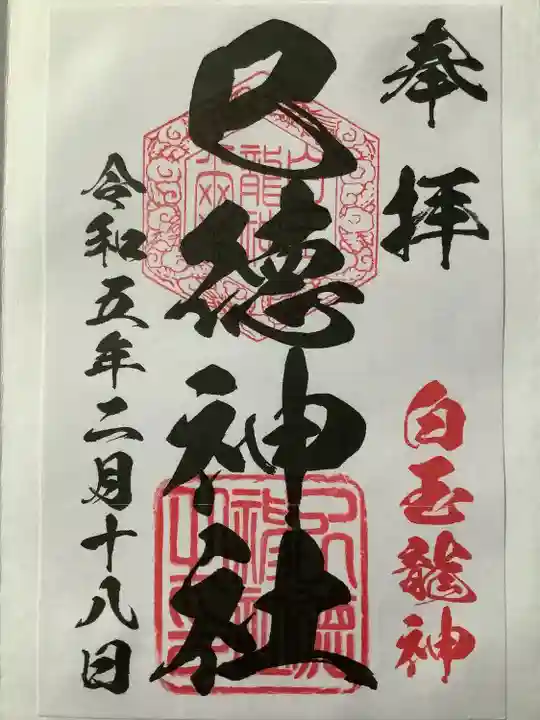 奉拝
白玉龍神
巳徳神社
令和五年二月十八日